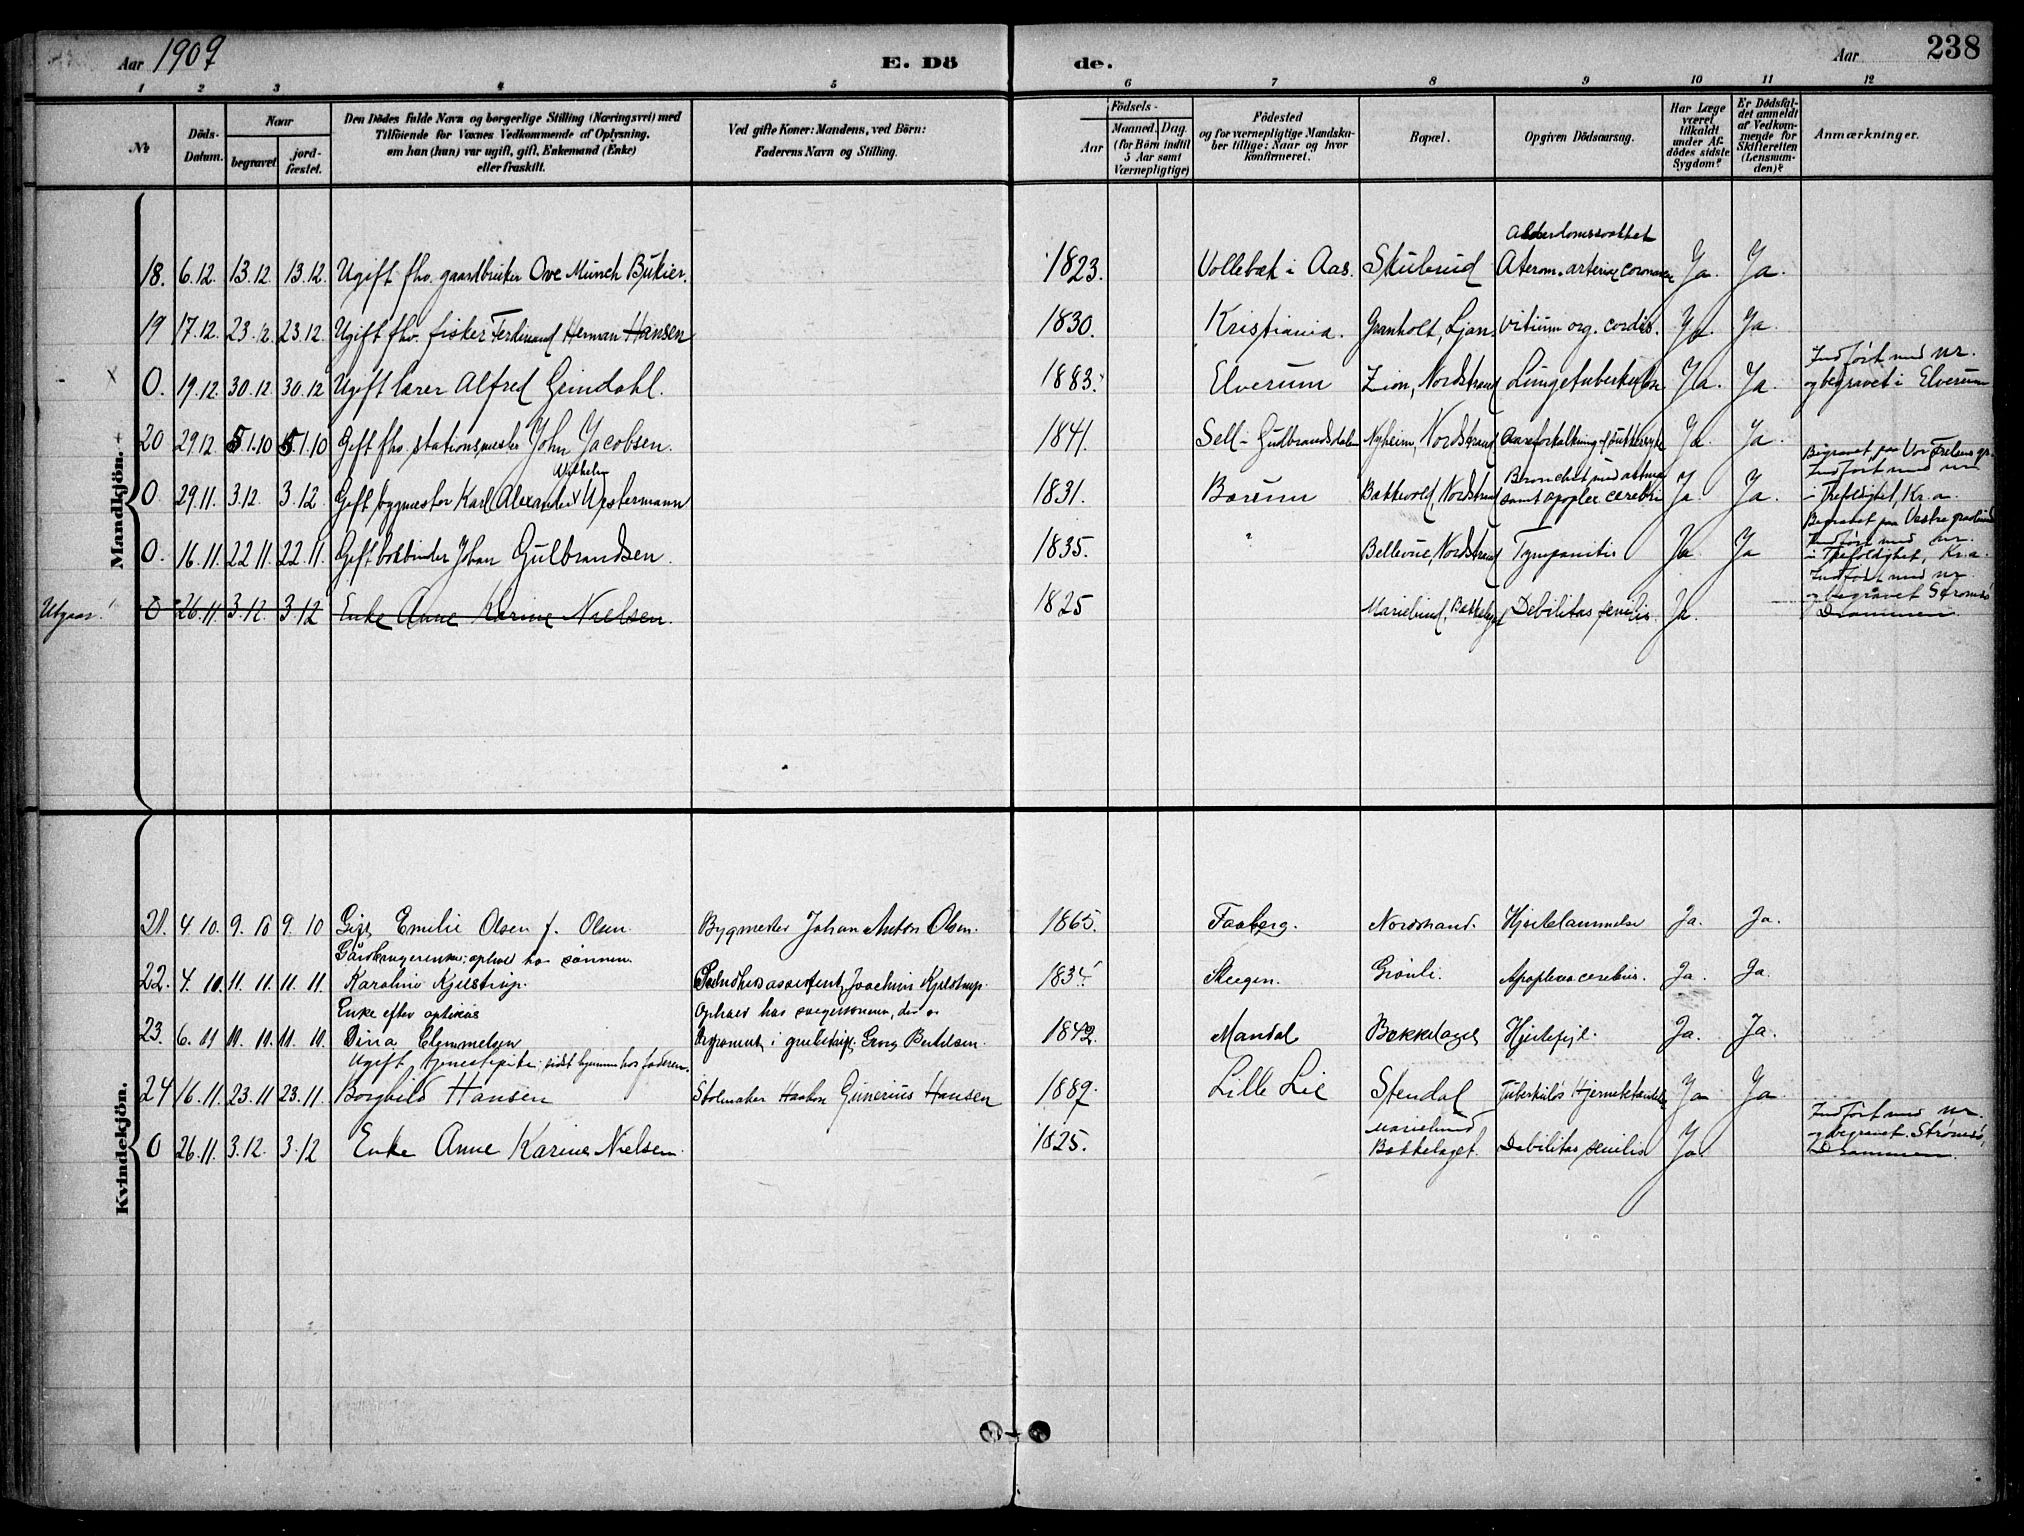 Aar 1909
E. Dö
de.
Aar
238
1 2 3 4 5 6 7 8 9 10 11 12
№
Döds-Datum.
Naar
begravet
jord-fæstet.
Den Dödes fulde Navn og borgerlige Stilling (Næringsvei) med
Tilföiende for Voxnes Vedkommende af Oplysning,
om han (hun) var ugift, gift, Enkemand (Enke)
eller fraskilt.
Ved gifte Koner: Mandens, ved Börn:
Faderens Navn og Stilling.
Födsels-
Aar
Maaned. Dag.
(for Börn indtil
5 Aar samt
Værnepligtige)
Födested
og for værnepligtige Mandska-
ber tillige: Naar og hvor
konfirmeret.
Bopæl.
Opgiven Dödsaarsag.
Har Læge
været
tilkaldt
under Af-
dödes sidste
Sygdom?
Er Dödsfal-
det anmeldt
af Vedkom-
mende for
Skifteretten
(Lensman-
den)?
Anmærkninger.
Mandkjön.
18. 6.12. 13.12. 13.12. Ugift fhv. gaardbruker Ove Munch Bükier. 1823. Vollebæk i Aas. Skubrud Aterom. arteriæ coronariæ Ja. Ja.
19 17.12. 23.12. 23.12. Ugift fhv. fisker Ferdinand Herman Hansen 1830. Kristiania. Granholt, Ljan. Vitium org. cordis. Ja. Ja.
0. 19.12. 30.12 30.12 Ugift lærer Alfred Grindahl. 1883. Elverum Zion, Nordstrand Lungetuberkulose Ja. Ja. Indført med nr.
og begravet i Elverum
20 29.12 5.1.10 5.1.10 Gift fhv. stationsmester John Jacobsen. 1841. Sell - Gudbrandsdalen Nyheim, Nordstrand Ja. Ja.
0 29.11. 3.12. 3.12 Gift bygmester Karl Alexander Vilhelm Westermann 1831. Bærum Bakkevold, Nordstrand Bronchit med astma
samt apoplex. cerebri Ja Ja. Begravet paa Vor Frelsers gr.
Indført med nr
i Trefoldighet, Kr.a.
0. 16.11. 22.11. 22.11. Gift bokbinder Johan Gulbrandsen. 1835. " Bellevue, Nordstrand Tympanitis Ja. Ja Begravet paa Vestre gravlund
Indført med nr.
i Trefoldighet, Kr.a.
Utgaar! 0 26.11. 3.12. 3.12 Enke Anne Karine Nielsen. 1825 Marielund, Bækkelaget Debilitas senilis. Ja. Indført med nr
og begravet Strømsø
Drammen.
Kvindekjön.
21. 4.10. 9.10 9.10 Emilie Olsen f. Olsen. Bygmester Johan Anton Olsen. 1865. Faaberg. Nordstrand. Hjertelammelse Ja. Ja.
22. 4.10. 11.11. 11.11. ophold hos sønnen.
Karoline Kjelstrup. assistent Joachim Kjelstrup. 1834. Steegen. Grønli. Apoplexia cerebris. Ja. Ja.
23. 6.11 11.11. 11.11. Enke efter optikus
Dina Clemmetsen Ophold hos svigersønnen, der er
Berthelsen. 1842. Mandal Bækkelaget Hjertefejl. Ja. Ja.
24 16.11. 23.11 23.11. Ugift tjenestepike, sidst hjemme hos faderen.
Borghild Hansen Stolmaker Gunerius Hansen 1889. Lille Lie Stendal Tuberkuløs Hjernebetændelse Ja Ja.
0 26.11. 3.12. 3.12 Enke Anne Karine Nielsen. 1825. Marielund
Bækkelaget. Debilitas senilis Ja. Indført med nr.
og begravet. Strømsø,
Drammen.